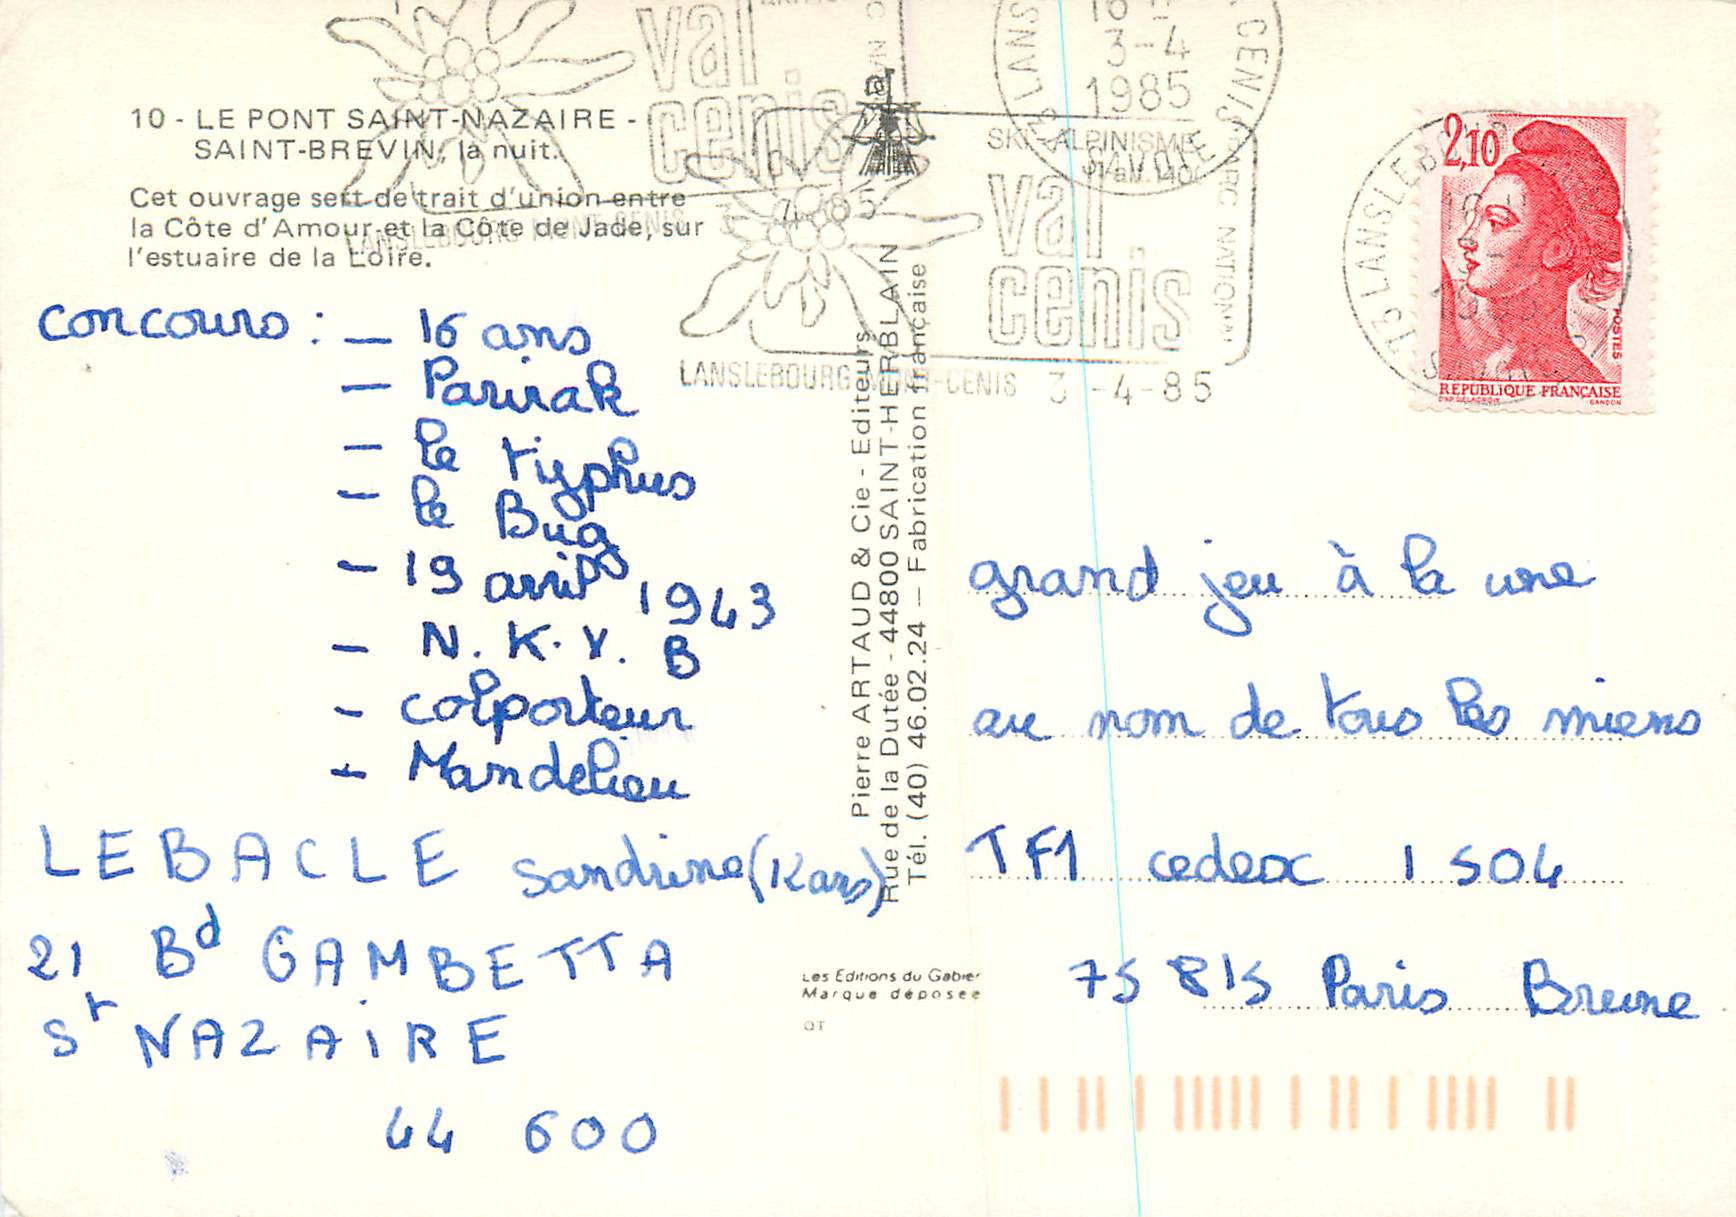 10 - LE PONT SAINT-NAZAIRE -
SAINT-BREVIN, la nuit.
Cet ouvrage sert de trait d'union entre
la Côte d'Amour et la Côte de Jade, sur
l'estuaire de la Loire.
val
cenis
LANSLEBOURG MONT-CENIS 3 -4-85
3-4
1985
SAVOIE
SKI-ALPINISME
val
cenis
PARC NATIONAL
LANSLEBOURG MONT-CENIS 3 -4-85
73 LANSLEBOURG
2,10
POSTES
REPUBLIQUE FRANÇAISE
D'AP. DELACROIX
GANDON
concours : — 16 ans
— Parirak
— le typhus
— le Bug
— 19 avril 1943
— N. K. V. B
— colporteur
— Mandelieu
LEBACLE Sandrine (Kars)
21 Bd GAMBETTA
St NAZAIRE
44 600
Pierre ARTAUD & Cie - Editeurs
Rue de la Dutée - 44800 SAINT-HERBLAIN
Tél. (40) 46.02.24 — Fabrication française
Les Editions du Gabier
Marque déposée
QT
grand jeu à la une
au nom de tous les miens
TF1 cedex 1504
75 815 Paris Brune